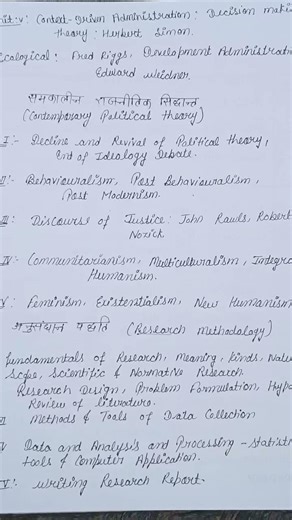 it:v: Context-Driven Administration: Decision maki
theory: Hurbert Simon.
Ecological: Fred Riggs, Development Administrat
Edward Weidner.
समकालीन राजनीतिक सिद्धान्त
(Contemporary Political theory)
I:- Decline and Revival of Political theory,
End of Idealogy Debate.
II:- Behaviouralism, Post Behaviouralism,
Post Modernism.
III: Discourse of Justice: John Rawls, Robert
Nozick
IV:- Communitarianism, Multiculturalism, Integra
Humanism.
V: Feminism, Existentialism, New Humanism
अनुसंधान पद्धति (Research Methodology)
fundamentals of Research, Meaning, Kinds, Natu
Scope, Scientific & Normative Research
Research Design, Problem Formulation, Hypo
Review of literature.
Methods & Tools of Data Collection
V Data and Analysis and Processing - Statist
tools & Computer Application.
V: Writing Research Report.